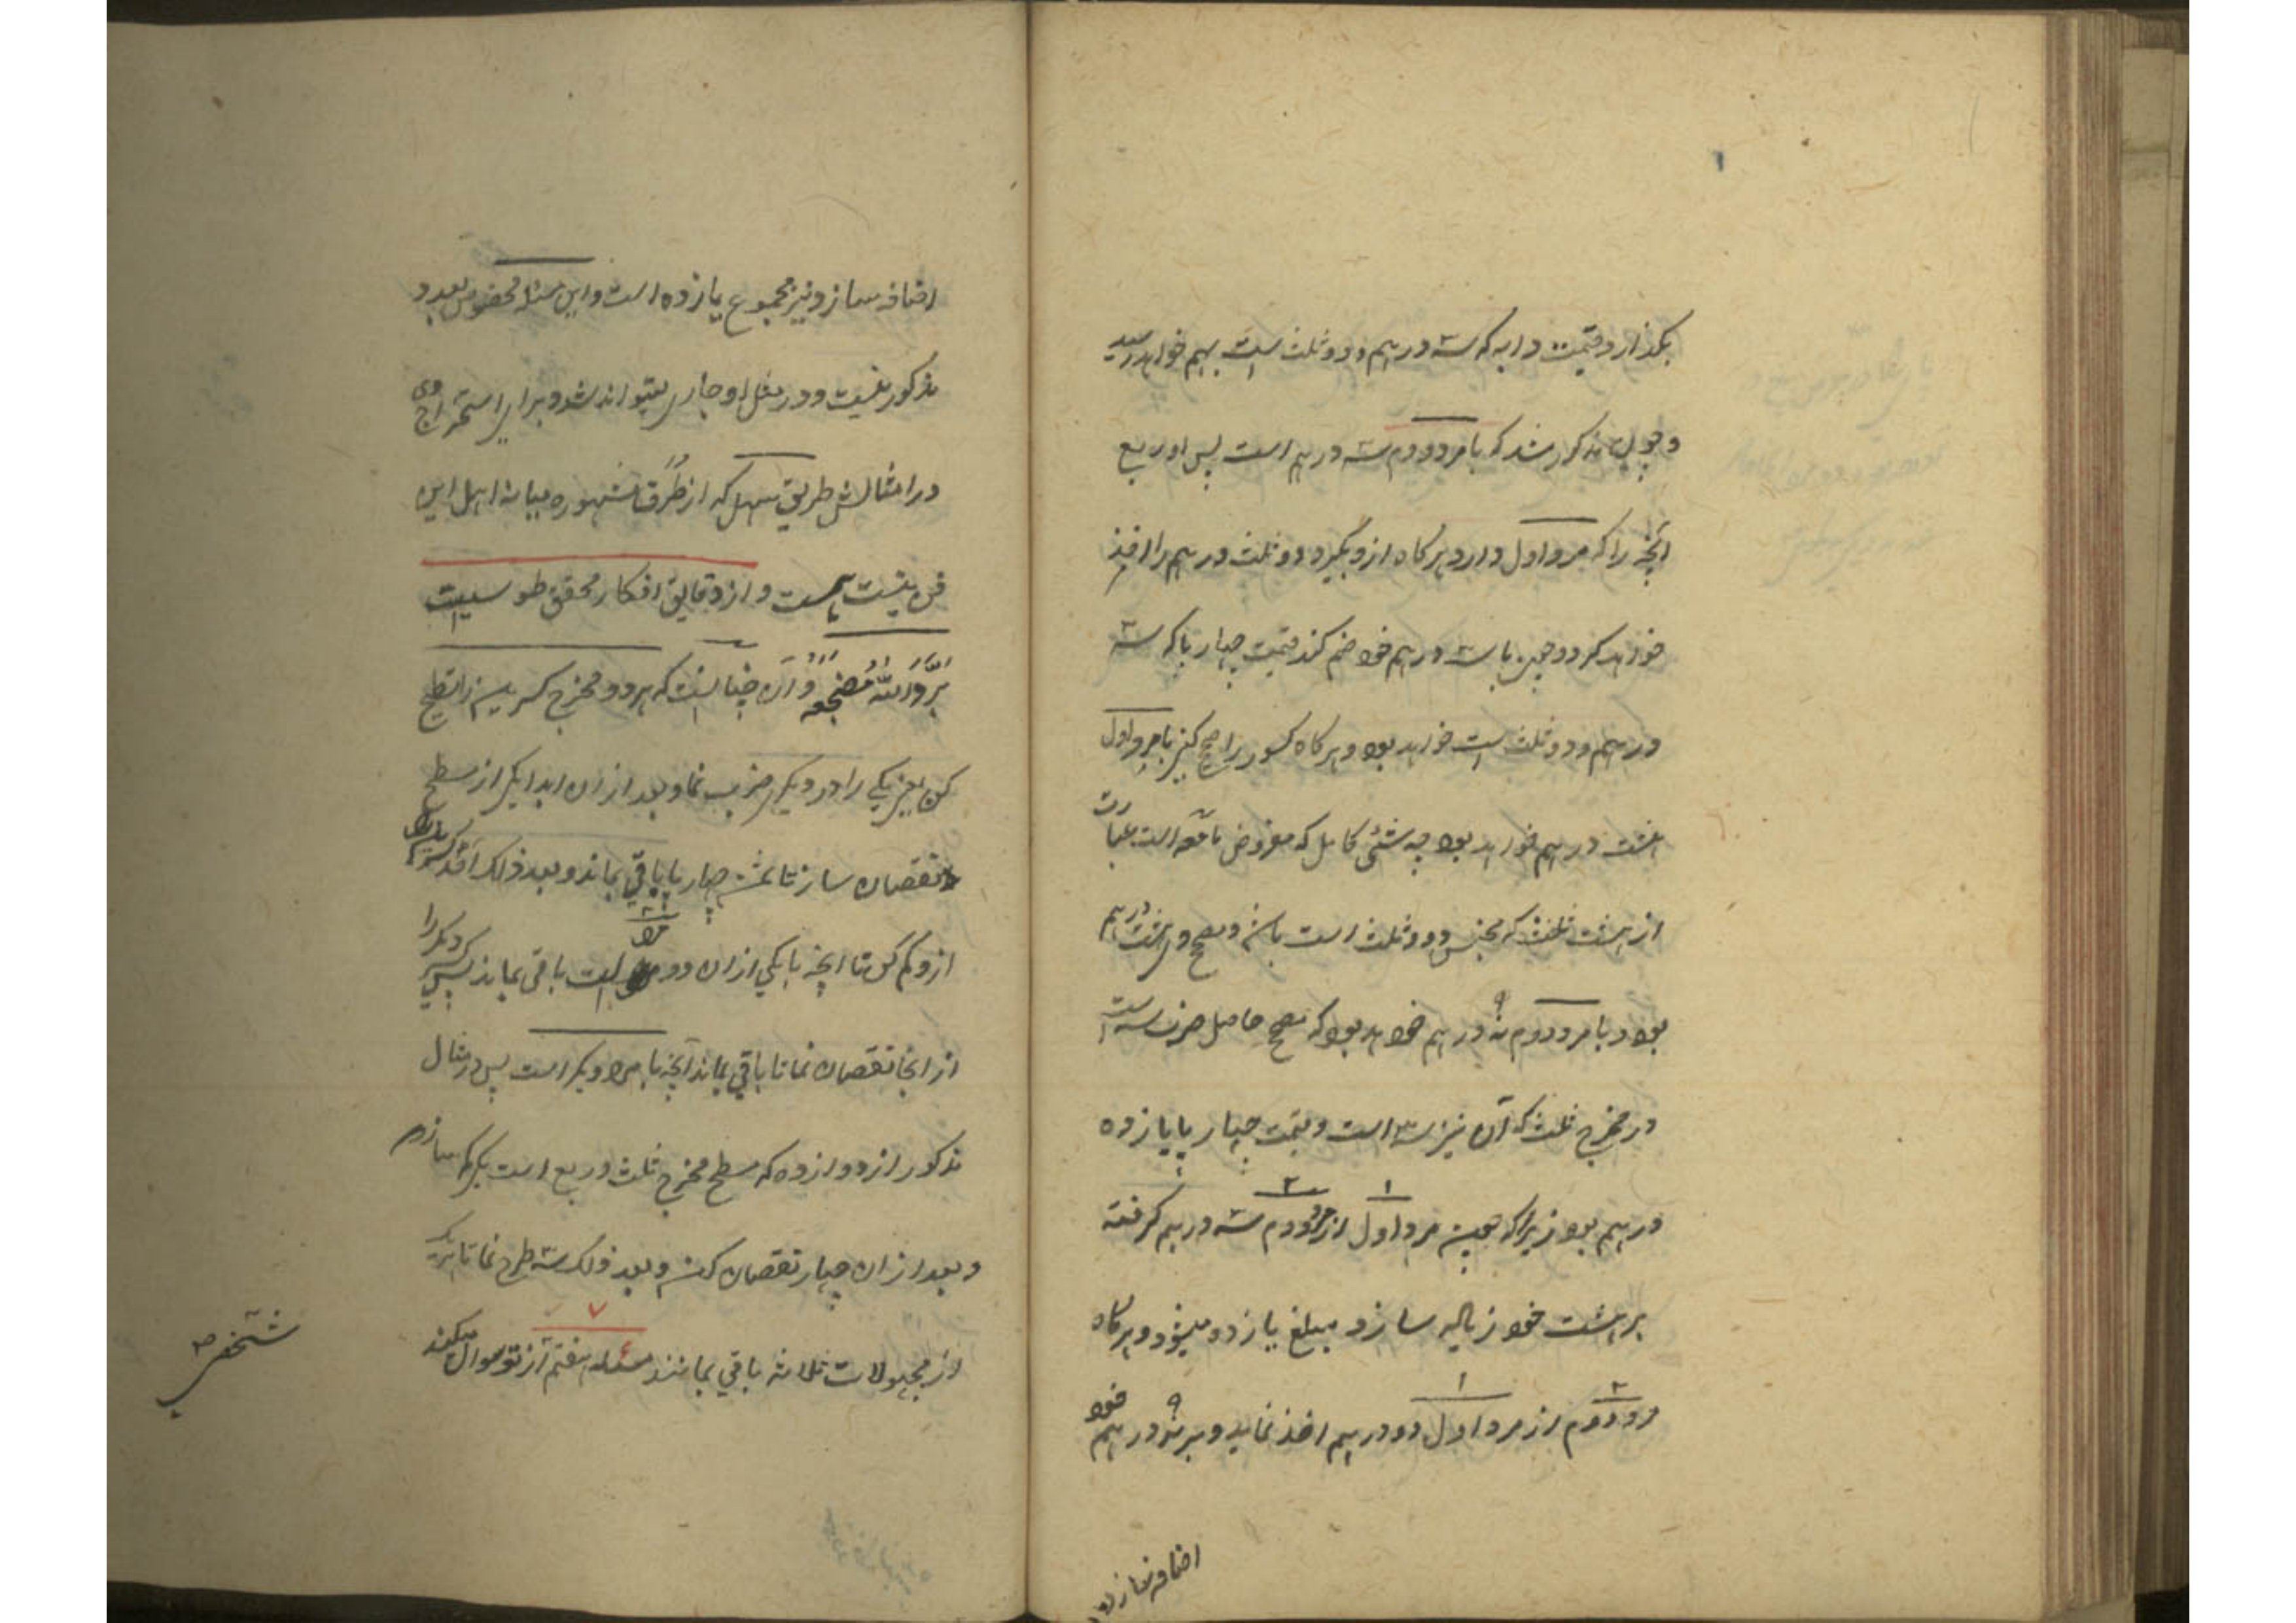 بگذارد قیمت دابه که سه درهم و دو ثلث است بهم خواهد رسید
و چون مذکور شد که با مرد دوم سه درهم است پس او ربع
آنچه را که مرد اول دارد هرگاه ازو بگیرد دو ثلث درهم را اخذ
خواهد کرد و چون با سه درهم خود ضم کند قیمت چهارپا که سه
درهم و دو ثلث است خواهد بود و هرگاه کسور را صحیح کنی با مرد اول
هشت درهم خواهد بود چه شیٔ کامل که مفروض ما معه است عبارت
از هشت ثلث که مجنس دو و ثلث است باشد و مصحح و هشت درهم
بود و با مرد دوم نه ۹ درهم خواهد بود که مصحح حاصل ضرب سه است
در مخرج ثلث که آن نیز سه است و قیمت چهارپا یازده
درهم بود زیرا که چون مرد اول ۱ از مرد دوم ۲ سه درهم گرفته
بر هشت خود زیاده سازد مبلغ یازده میشود و هرگاه
مرد دوم ۲ از مرد اول ۱ دو درهم اخذ نماید و بر نه ۹ درهم خود
اضافه سازد
اضافه سازد نیز مجموع یازده است و این مسئله مخصوص بعدد
مذکور نیست و در مثل او جاری میتواند شد و برای استخراج وی
و امثالش طریق سهل که از طُرُق مشهوره میانه اهل این
فن نیست هست و از دقایق افکار محقق طوسیست
بَرَّدَ اللّٰهُ مَضْجَعَهُ و آن چنانست که هر دو مخرج کسرین را تسطیح
کن یعنی یکی را در دیگر ضرب نما و بعد از آن ابدا یکی از سطح
نقصان ساز تا ثمن چهارپا باقی بماند و بعد ذلک احد کسرین را
ازو کم کن تا آنچه با یکی از آن دو مرد است باقی بماند پس کسر دیگر را
از آنجا نقصان نما تا باقی بماند آنچه با مرد دیگر است پس در مثال
مذکور از دوازده که سطح مخرج ثلث و ربع است یکی کم سازی
و بعد از آن چهار نقصان کن و بعد ذلک سه طرح نما تا هر یک
از مجهولات ثلاثه باقی بمانند مسئله هفتم ۷ از تو سوال میکند
شخصی